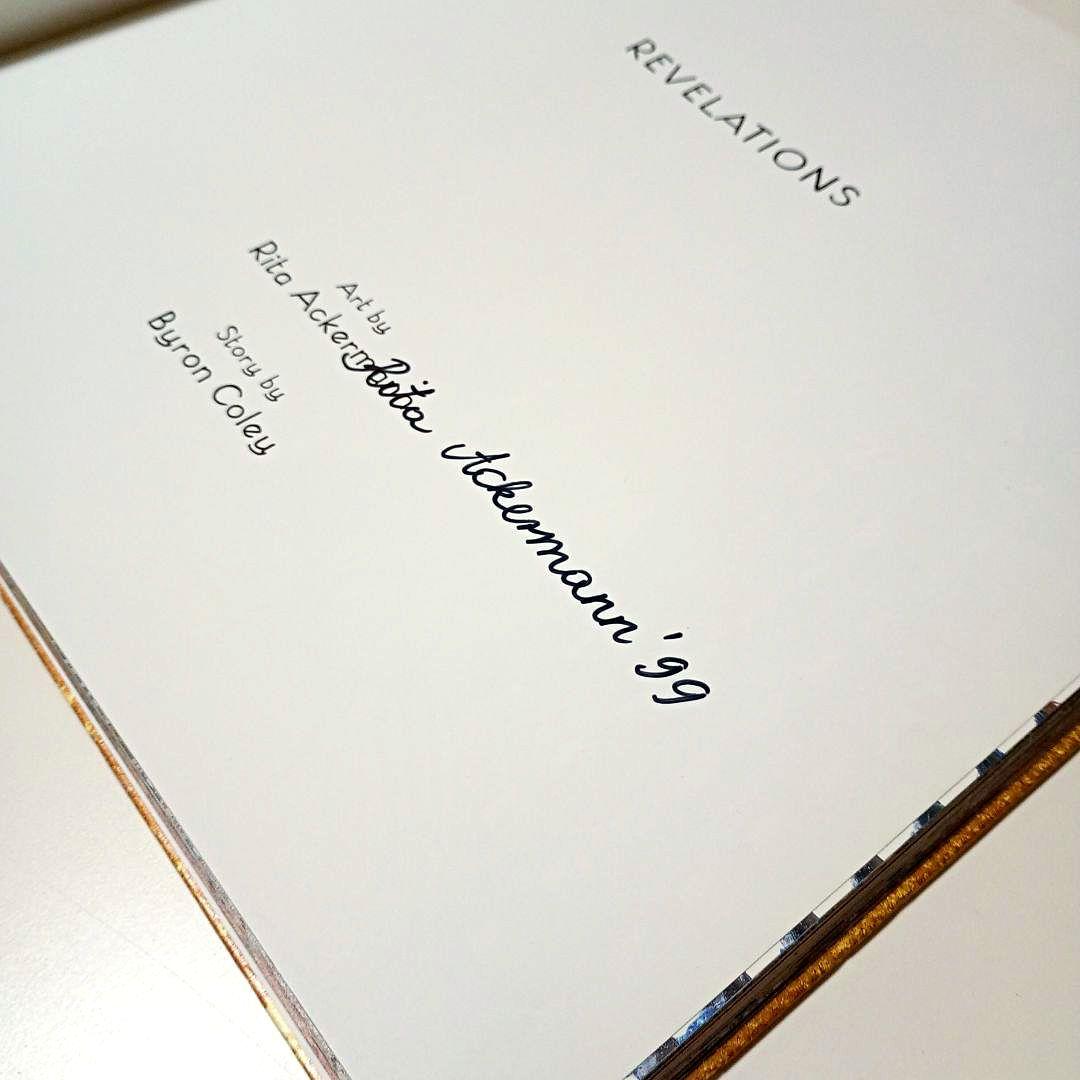 REVELATIONS
Art by
Rita Ackermann
Rita Ackermann '99
Story by
Byron Coley